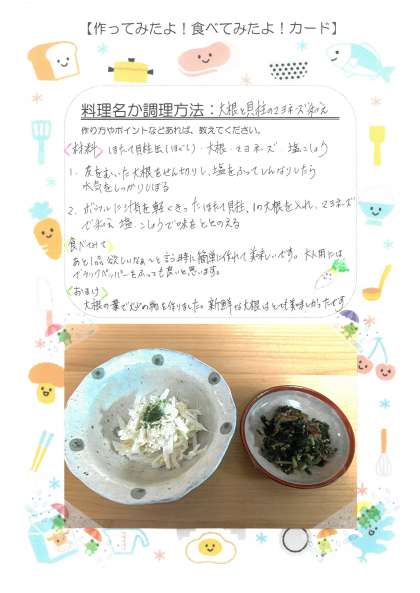 【作ってみたよ！食べてみたよ！カード】
料理名か調理方法：大根と貝柱のマヨネーズ和え
作り方やポイントなどあれば、教えてください。
<材料> ほたて貝柱缶(ほぐし)・大根・マヨネーズ・塩こしょう
1. 皮をむいた大根をせん切りし、塩をふってしんなりしたら
水気をしっかりしぼる
2. ボウルに汁気を軽くきったほたて貝柱、1の大根を入れ、マヨネーズ
で和え 塩・こしょうで味をととのえる
食べてみて
あと1品欲しいなぁ〜と言う時に簡単に作れて美味しいです。大人用には
ブラックペッパーをふっても良いと思います。
<おまけ>
大根の葉で炒め物を作りました。新鮮な大根はとても美味しかったです